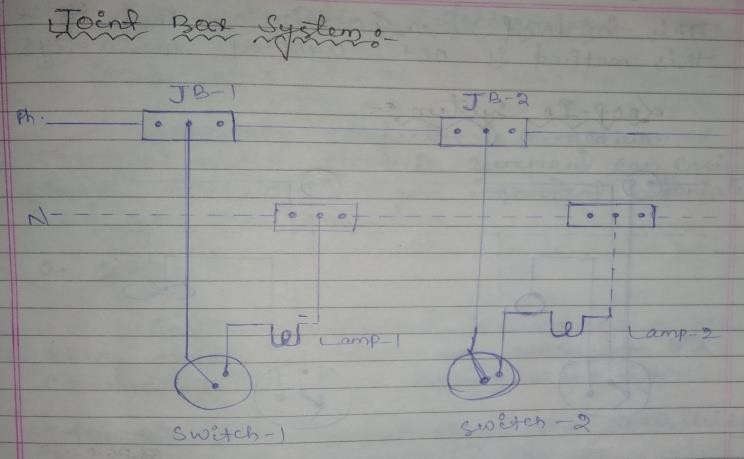 Joint Box System:-
JB-1
JB-2
Ph.
N
Lamp-1
Lamp-2
Switch-1
Switch-2